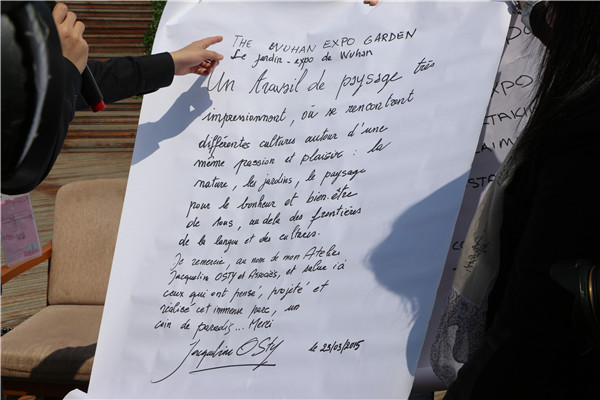 THE WUHAN EXPO GARDEN
Le jardin-expo de Wuhan
Un travail de paysage très
impressionnant, où se rencontrent
différentes cultures autour d'une
même passion et plaisir : la
nature, les jardins, le paysage
pour le bonheur et bien-être
de tous, au delà des frontières
de la langue et des cultures.
Je remercie, au nom de mon Atelier
Jacqueline OSTY et Associés, et salue ici
ceux qui ont pensé, projeté et
réalisé cet immense parc, un
coin de paradis... Merci
Jacqueline OSTY le 23/03/2015
XPO